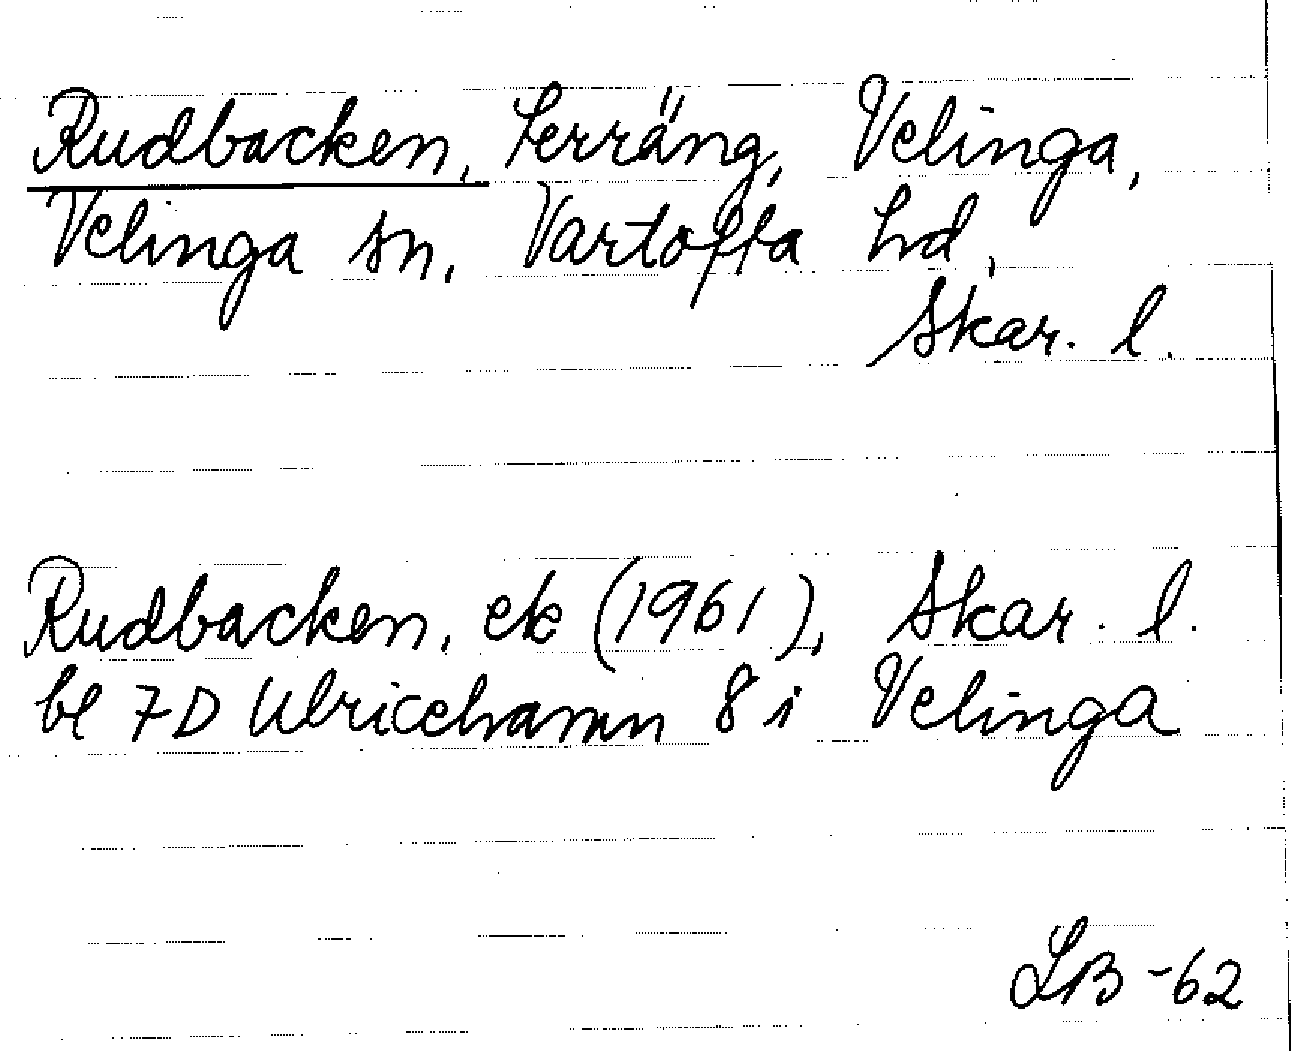 Rudbacken, Terräng, Velinga,
Velinga sn, Vartofta hd,
Skar. l.
Rudbacken, ek (1961), Skar. l.
bl 7D Ulricehamn 8 i Velinga
LB -62